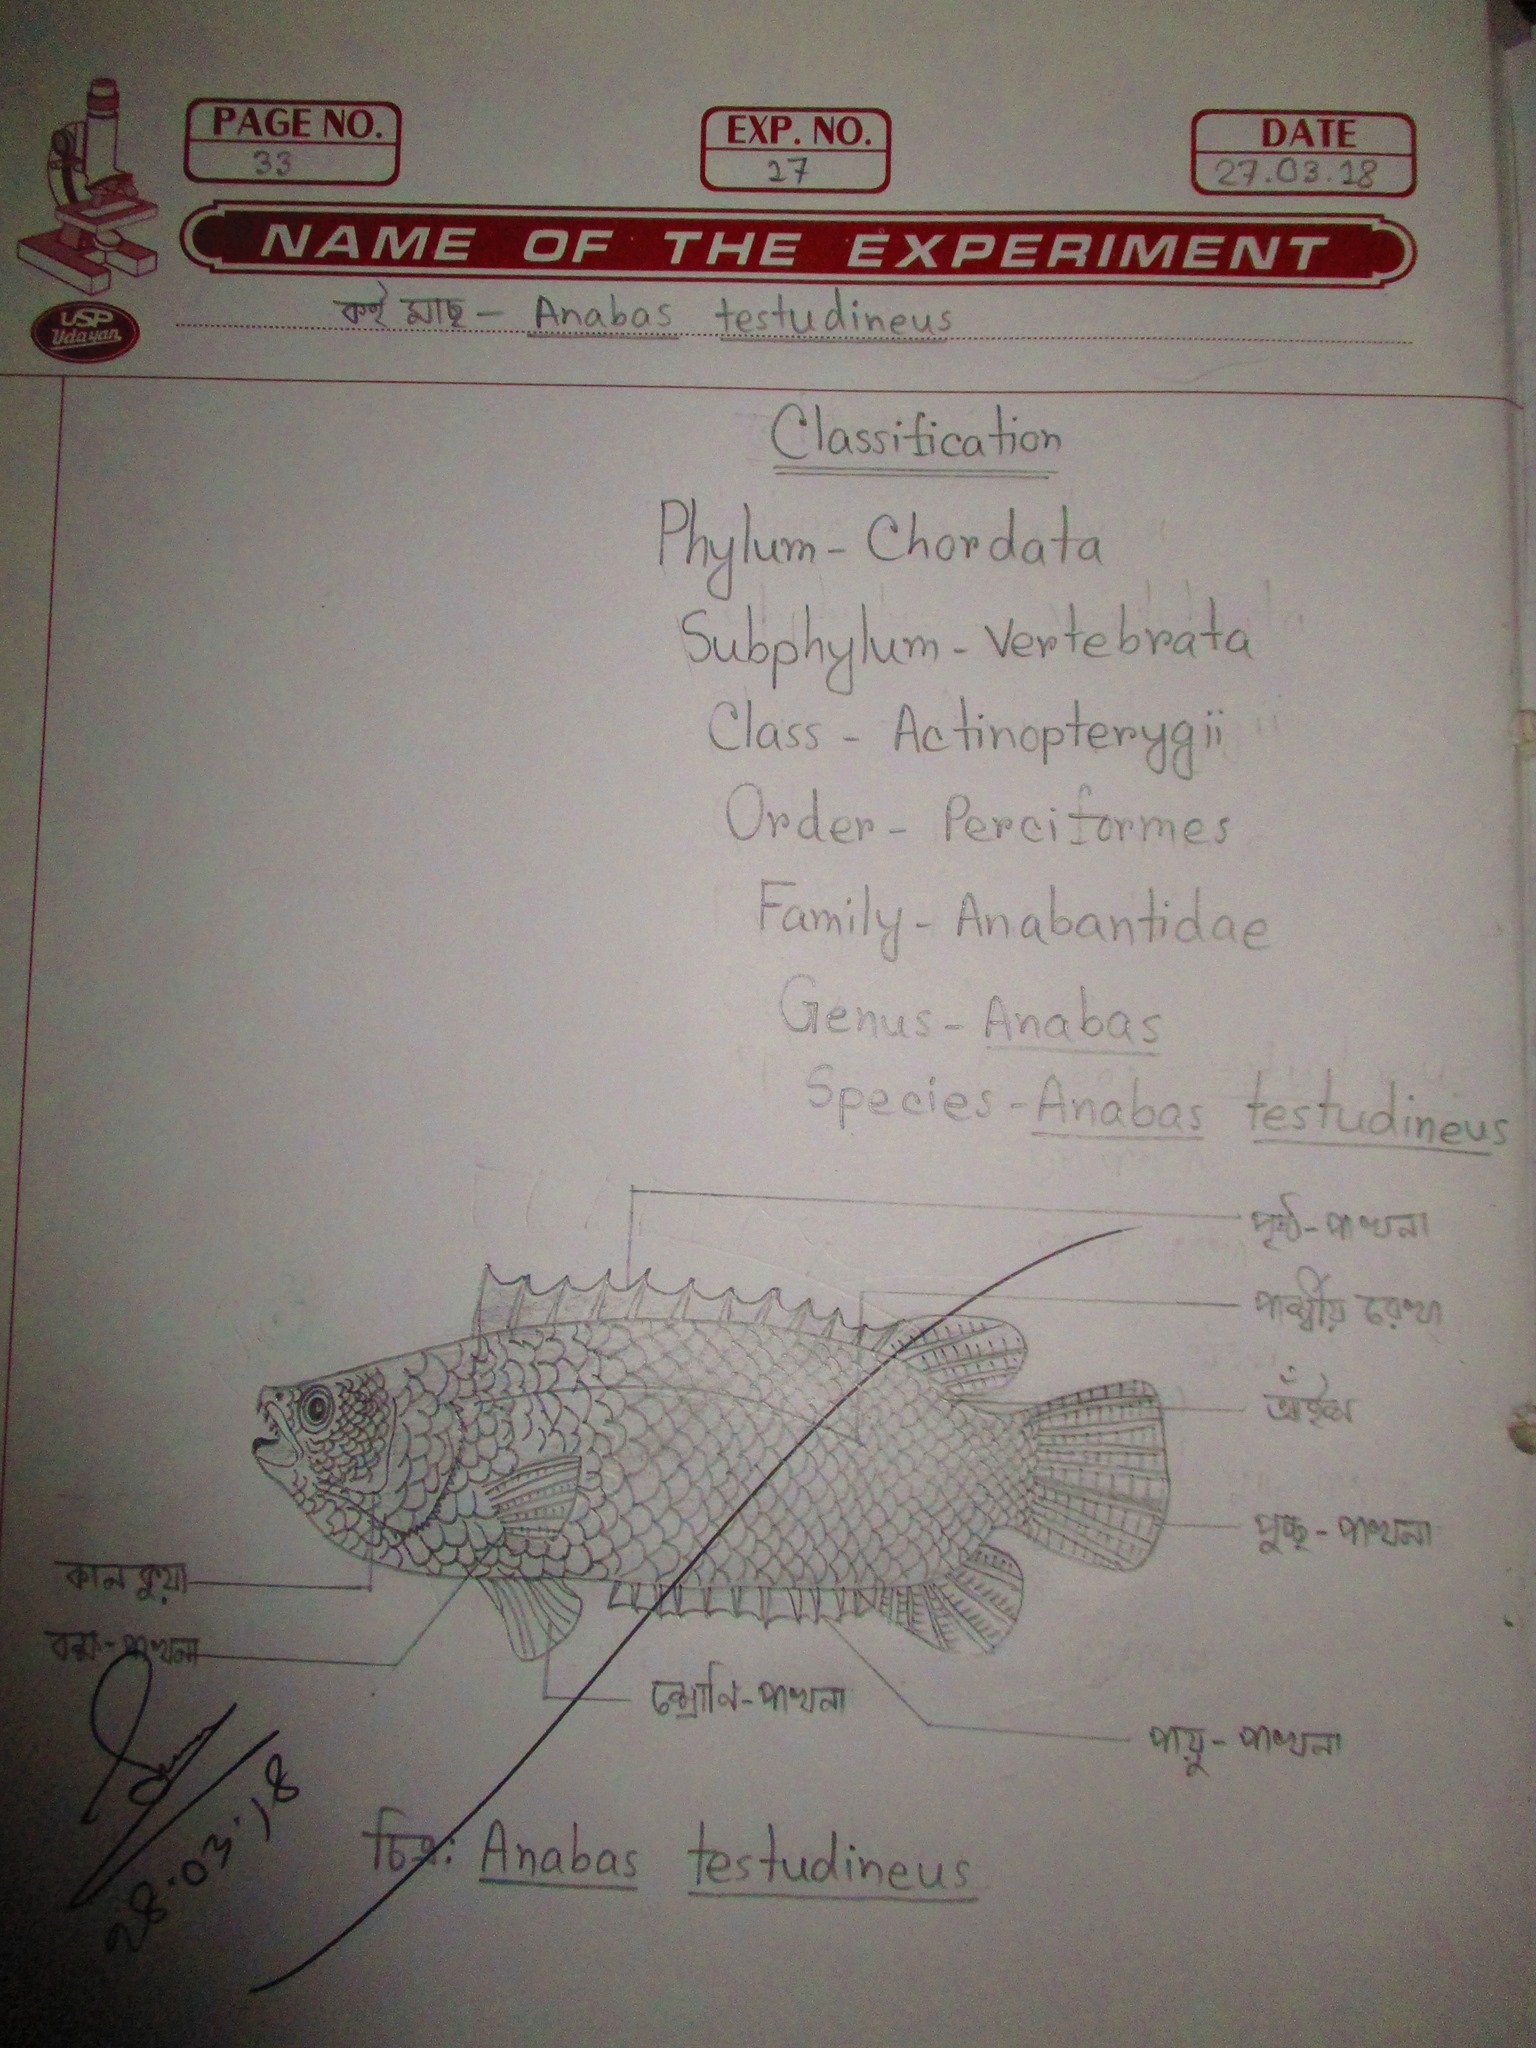 PAGE NO.
33
EXP. NO.
27
DATE
27.03.18
NAME OF THE EXPERIMENT
USP
Udayan
কই মাছ - Anabas testudineus
Classification
Phylum - Chordata
Subphylum - Vertebrata
Class - Actinopterygii
Order - Perciformes
Family - Anabantidae
Genus - Anabas
Species - Anabas testudineus
পৃষ্ঠ-পাখনা
পার্শ্বীয় রেখা
আঁইশ
পুচ্ছ-পাখনা
কানকুয়া
বক্ষ-পাখনা
শ্রোণি-পাখনা
পায়ু-পাখনা
28.03.18
চিত্র: Anabas testudineus